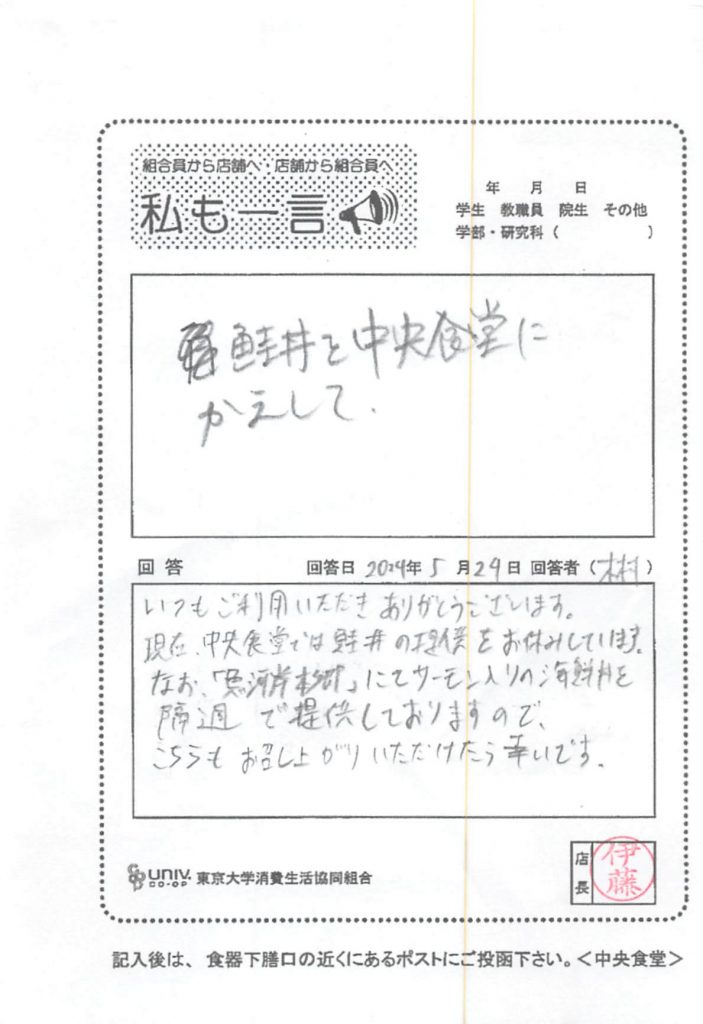 組合員から店舗へ・店舗から組合員へ
私も一言
年 月 日
学生 教職員 院生 その他
学部・研究科（ ）
鮭丼を中央食堂に
かえして.
回答 回答日 2024年5月29日 回答者（ ）
いつもご利用いただきありがとうございます。
現在、中央食堂では鮭丼の提供をお休みしています。
なお、「魚河岸本郷」にてサーモン入りの海鮮丼を
隔週で提供しておりますので、
こちらもお召し上がりいただけたら幸いです。
UNIV. CO-OP 東京大学消費生活協同組合
店長 伊藤
記入後は、食器下膳口の近くにあるポストにご投函下さい。＜中央食堂＞